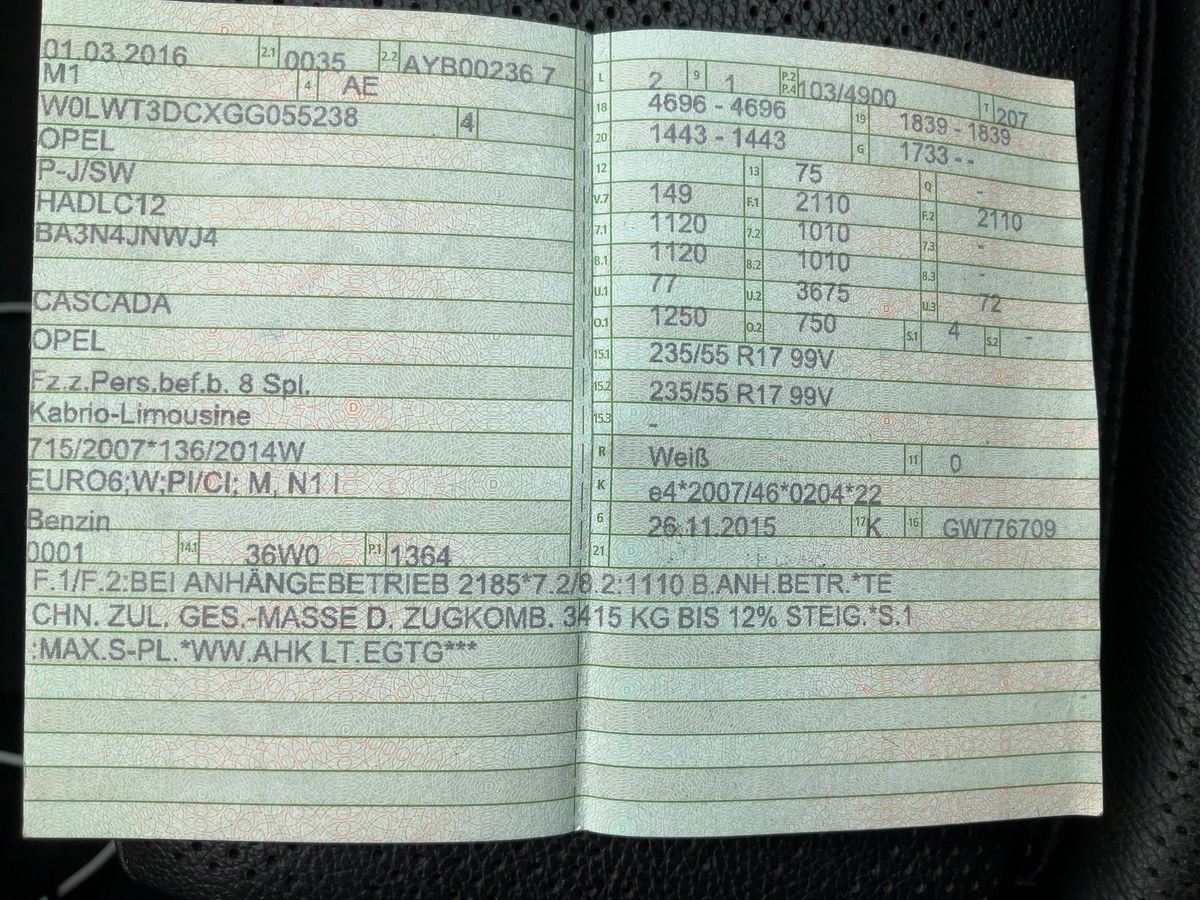 01.03.2016 2.1 0035 2.2 AYB00236 7
M1 4 AE
W0LWT3DCXGG055238 4
OPEL
P-J/SW
HADLC12
BA3N4JNWJ4
CASCADA
OPEL
Fz.z.Pers.bef.b. 8 Spl.
Kabrio-Limousine
715/2007*136/2014W
EURO6;W;PI/CI; M, N1 I
Benzin
0001 14.1 36W0 P.1 1364
L 2 9 1 P.2 P.4 103/4900 T 207
18 4696 - 4696 19 1839 - 1839
20 1443 - 1443 G 1733 - -
12 13 75 Q -
V.7 149 F.1 2110 F.2 2110
7.1 1120 7.2 1010 7.3 -
8.1 1120 8.2 1010 8.3 -
U.1 77 U.2 3675 U.3 72
O.1 1250 O.2 750 S.1 4 S.2 -
15.1 235/55 R17 99V
15.2 235/55 R17 99V
15.3 -
R Weiß 11 0
K e4*2007/46*0204*22
6 26.11.2015 17 K 16 GW776709
21
F.1/F.2:BEI ANHÄNGEBETRIEB 2185*7.2/8.2:1110 B.ANH.BETR.*TE
CHN. ZUL. GES.-MASSE D. ZUGKOMB. 3415 KG BIS 12% STEIG.*S.1
:MAX.S-PL.*WW.AHK LT.EGTG***